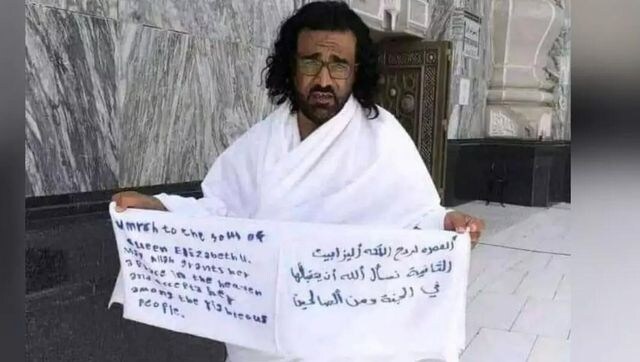 umrah to the soul of
Queen Elizabeth II.
May Allah grants her
a place in the heaven
and accepts her
among the righteous
people.
العمره لروح الملكه أليزابيت
الثانية نسأل الله أن يتقبلها
في الجنة ومن الصالحين